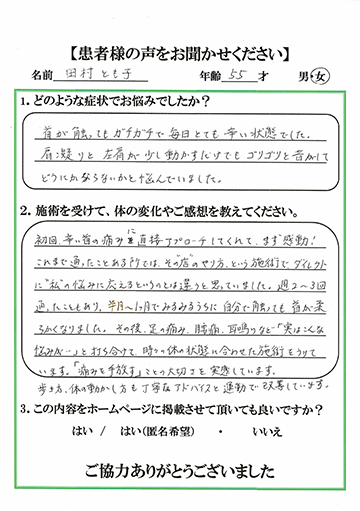 【患者様の声をお聞かせください】
名前 田村とも子 年齢 55 才 男・女
1. どのような症状でお悩みでしたか？
首が触ってもガチガチで毎日とても辛い状態でした。
肩凝りと左肩が少し動かすだけでもゴリゴリと音がして
どうにかならないかと悩んでいました。
2. 施術を受けて、体の変化やご感想を教えてください。
初回、辛い首の痛みに直接アプローチしてくれて、まず感動!
これまで通ったことある所では、その"店"のやり方、という施術で、ダイレクト
に"私"の悩みに応えるというのとは違うと思っていました。週2～3回
通ったこともあり、半月～1ヶ月でみるみるうちに自分で触っても首が柔
らかくなりました。その後、足の痛み、膝痛、耳鳴りなど…「実はこんな
悩みが…」と打ち合けて、時々の体の状態に合わせた施術をうけて
います。「痛みを手放す」ことの大切さを実感しています。
歩き方、体の動かし方も丁寧なアドバイスと運動で改善しています。
3. この内容をホームページに掲載させて頂いても良いですか？
はい / はい(匿名希望) ・ いいえ
ご協力ありがとうございました